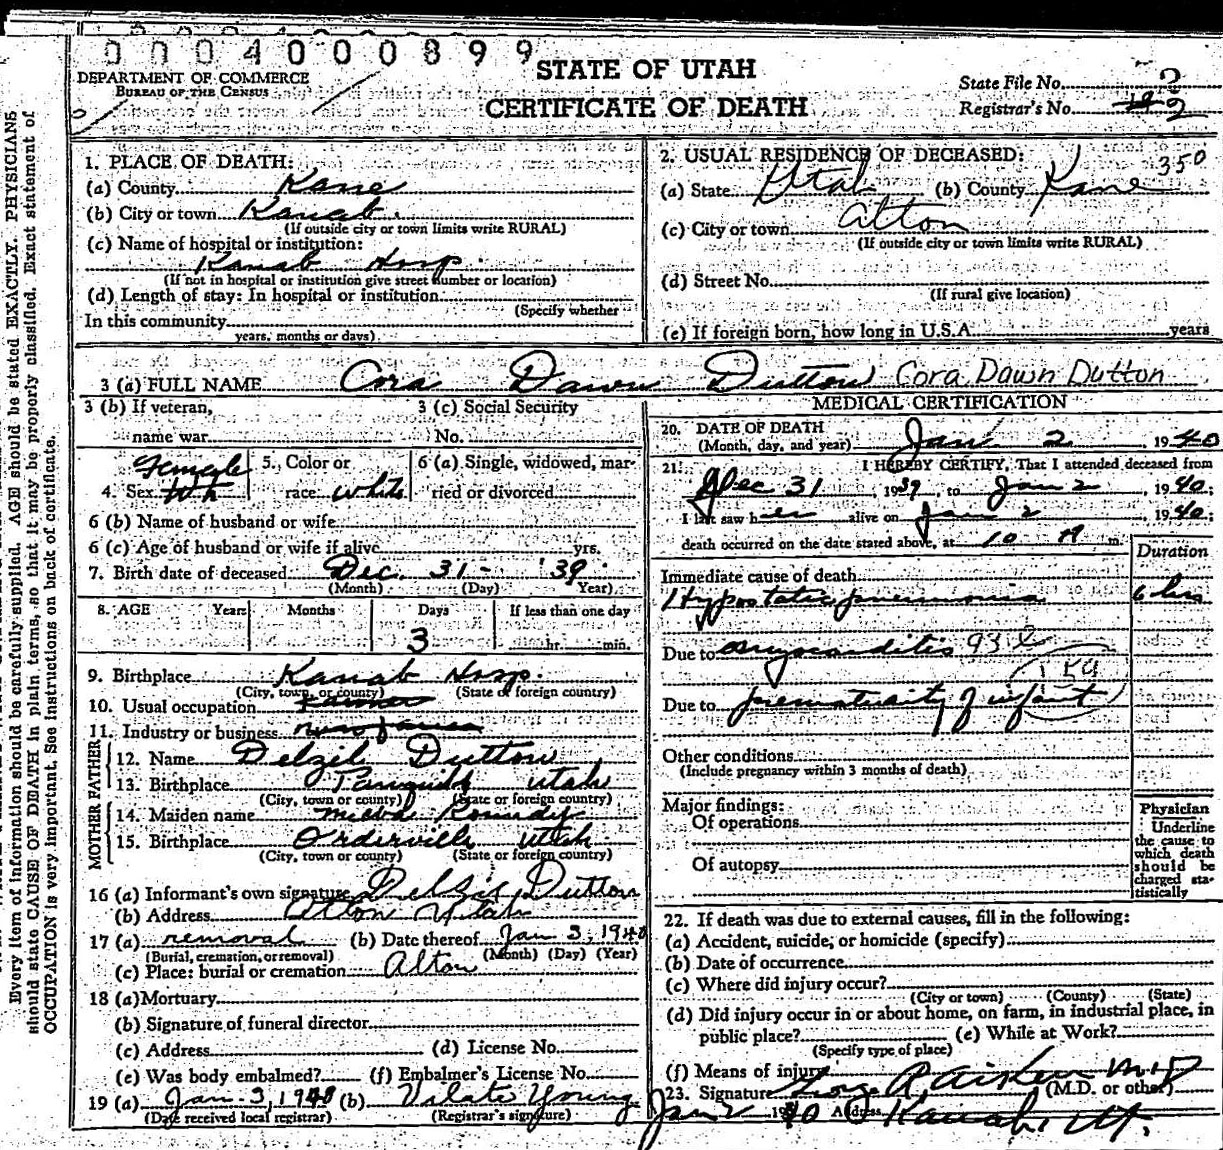 0 0 0 4 0 0 0 8 9 9
DEPARTMENT OF COMMERCE
BUREAU OF THE CENSUS
STATE OF UTAH
CERTIFICATE OF DEATH
State File No. 2
Registrar's No. 2
1. PLACE OF DEATH:
(a) County Kane
(b) City or town Kanab.
(If outside city or town limits write RURAL)
(c) Name of hospital or institution:
Kanab Hosp.
(If not in hospital or institution give street number or location)
(d) Length of stay: In hospital or institution
(Specify whether
In this community
years, months or days)
2. USUAL RESIDENCE OF DECEASED: 350
(a) State Utah (b) County Kane
(c) City or town Alton
(If outside city or town limits write RURAL)
(d) Street No.
(If rural give location)
(e) If foreign born, how long in U.S.A. years
3 (a) FULL NAME Cora Dawn Dutton Cora Dawn Dutton
3 (b) If veteran, 3 (c) Social Security
name war No.
Female
4. Sex Wh 5. Color or race white 6 (a) Single, widowed, married or divorced
6 (b) Name of husband or wife
6 (c) Age of husband or wife if alive yrs.
7. Birth date of deceased Dec. 31 - '39
(Month) (Day) Year)
8. AGE Years Months Days If less than one day
3 hr. min.
9. Birthplace Kanab Hosp.
(City, town, or county) (State or foreign country)
10. Usual occupation
11. Industry or business
FATHER
12. Name Delzil Dutton
13. Birthplace Panguitch Utah
(City, town or county) (State or foreign country)
MOTHER
14. Maiden name
15. Birthplace Orderville Utah
(City, town or county) (State or foreign country)
16 (a) Informant's own signature Delzil Dutton
(b) Address Alton Utah
17 (a) removal (b) Date thereof Jan 3, 1940
(Burial, cremation, or removal) (Month) (Day) (Year)
(c) Place: burial or cremation Alton
18 (a) Mortuary
(b) Signature of funeral director
(c) Address (d) License No.
(e) Was body embalmed? (f) Embalmer's License No.
19 (a) Jan-3, 1940 (b) Vilate Young
(Date received local registrar) (Registrar's signature)
MEDICAL CERTIFICATION
20. DATE OF DEATH
(Month, day, and year) Jan 2, 1940
21. I HEREBY CERTIFY, That I attended deceased from
Dec 31, 1939, to Jan 2, 1940;
I last saw her alive on Jan 2, 1940;
death occurred on the date stated above, at 10 A m.
Duration
Immediate cause of death
Hypostatic pneumonia 6 hrs
Due to myocarditis 93
159
Due to prematurity of infant
Other conditions
(Include pregnancy within 3 months of death)
Major findings:
Of operations
Of autopsy
Physician
Underline
the cause to
which death
should be
charged sta-
tistically
22. If death was due to external causes, fill in the following:
(a) Accident, suicide, or homicide (specify)
(b) Date of occurrence
(c) Where did injury occur?
(City or town) (County) (State)
(d) Did injury occur in or about home, on farm, in industrial place, in
public place? (e) While at Work?
(Specify type of place)
(f) Means of injury
23. Signature Geo. R Aiken M.D (M.D. or other)
Jan 2 1940 Address Kanab, Ut.
Every item of information should be carefully supplied. AGE should be stated EXACTLY. PHYSICIANS
should state CAUSE OF DEATH in plain terms, so that it may be properly classified. Exact statement of
OCCUPATION is very important. See instructions on back of certificate.